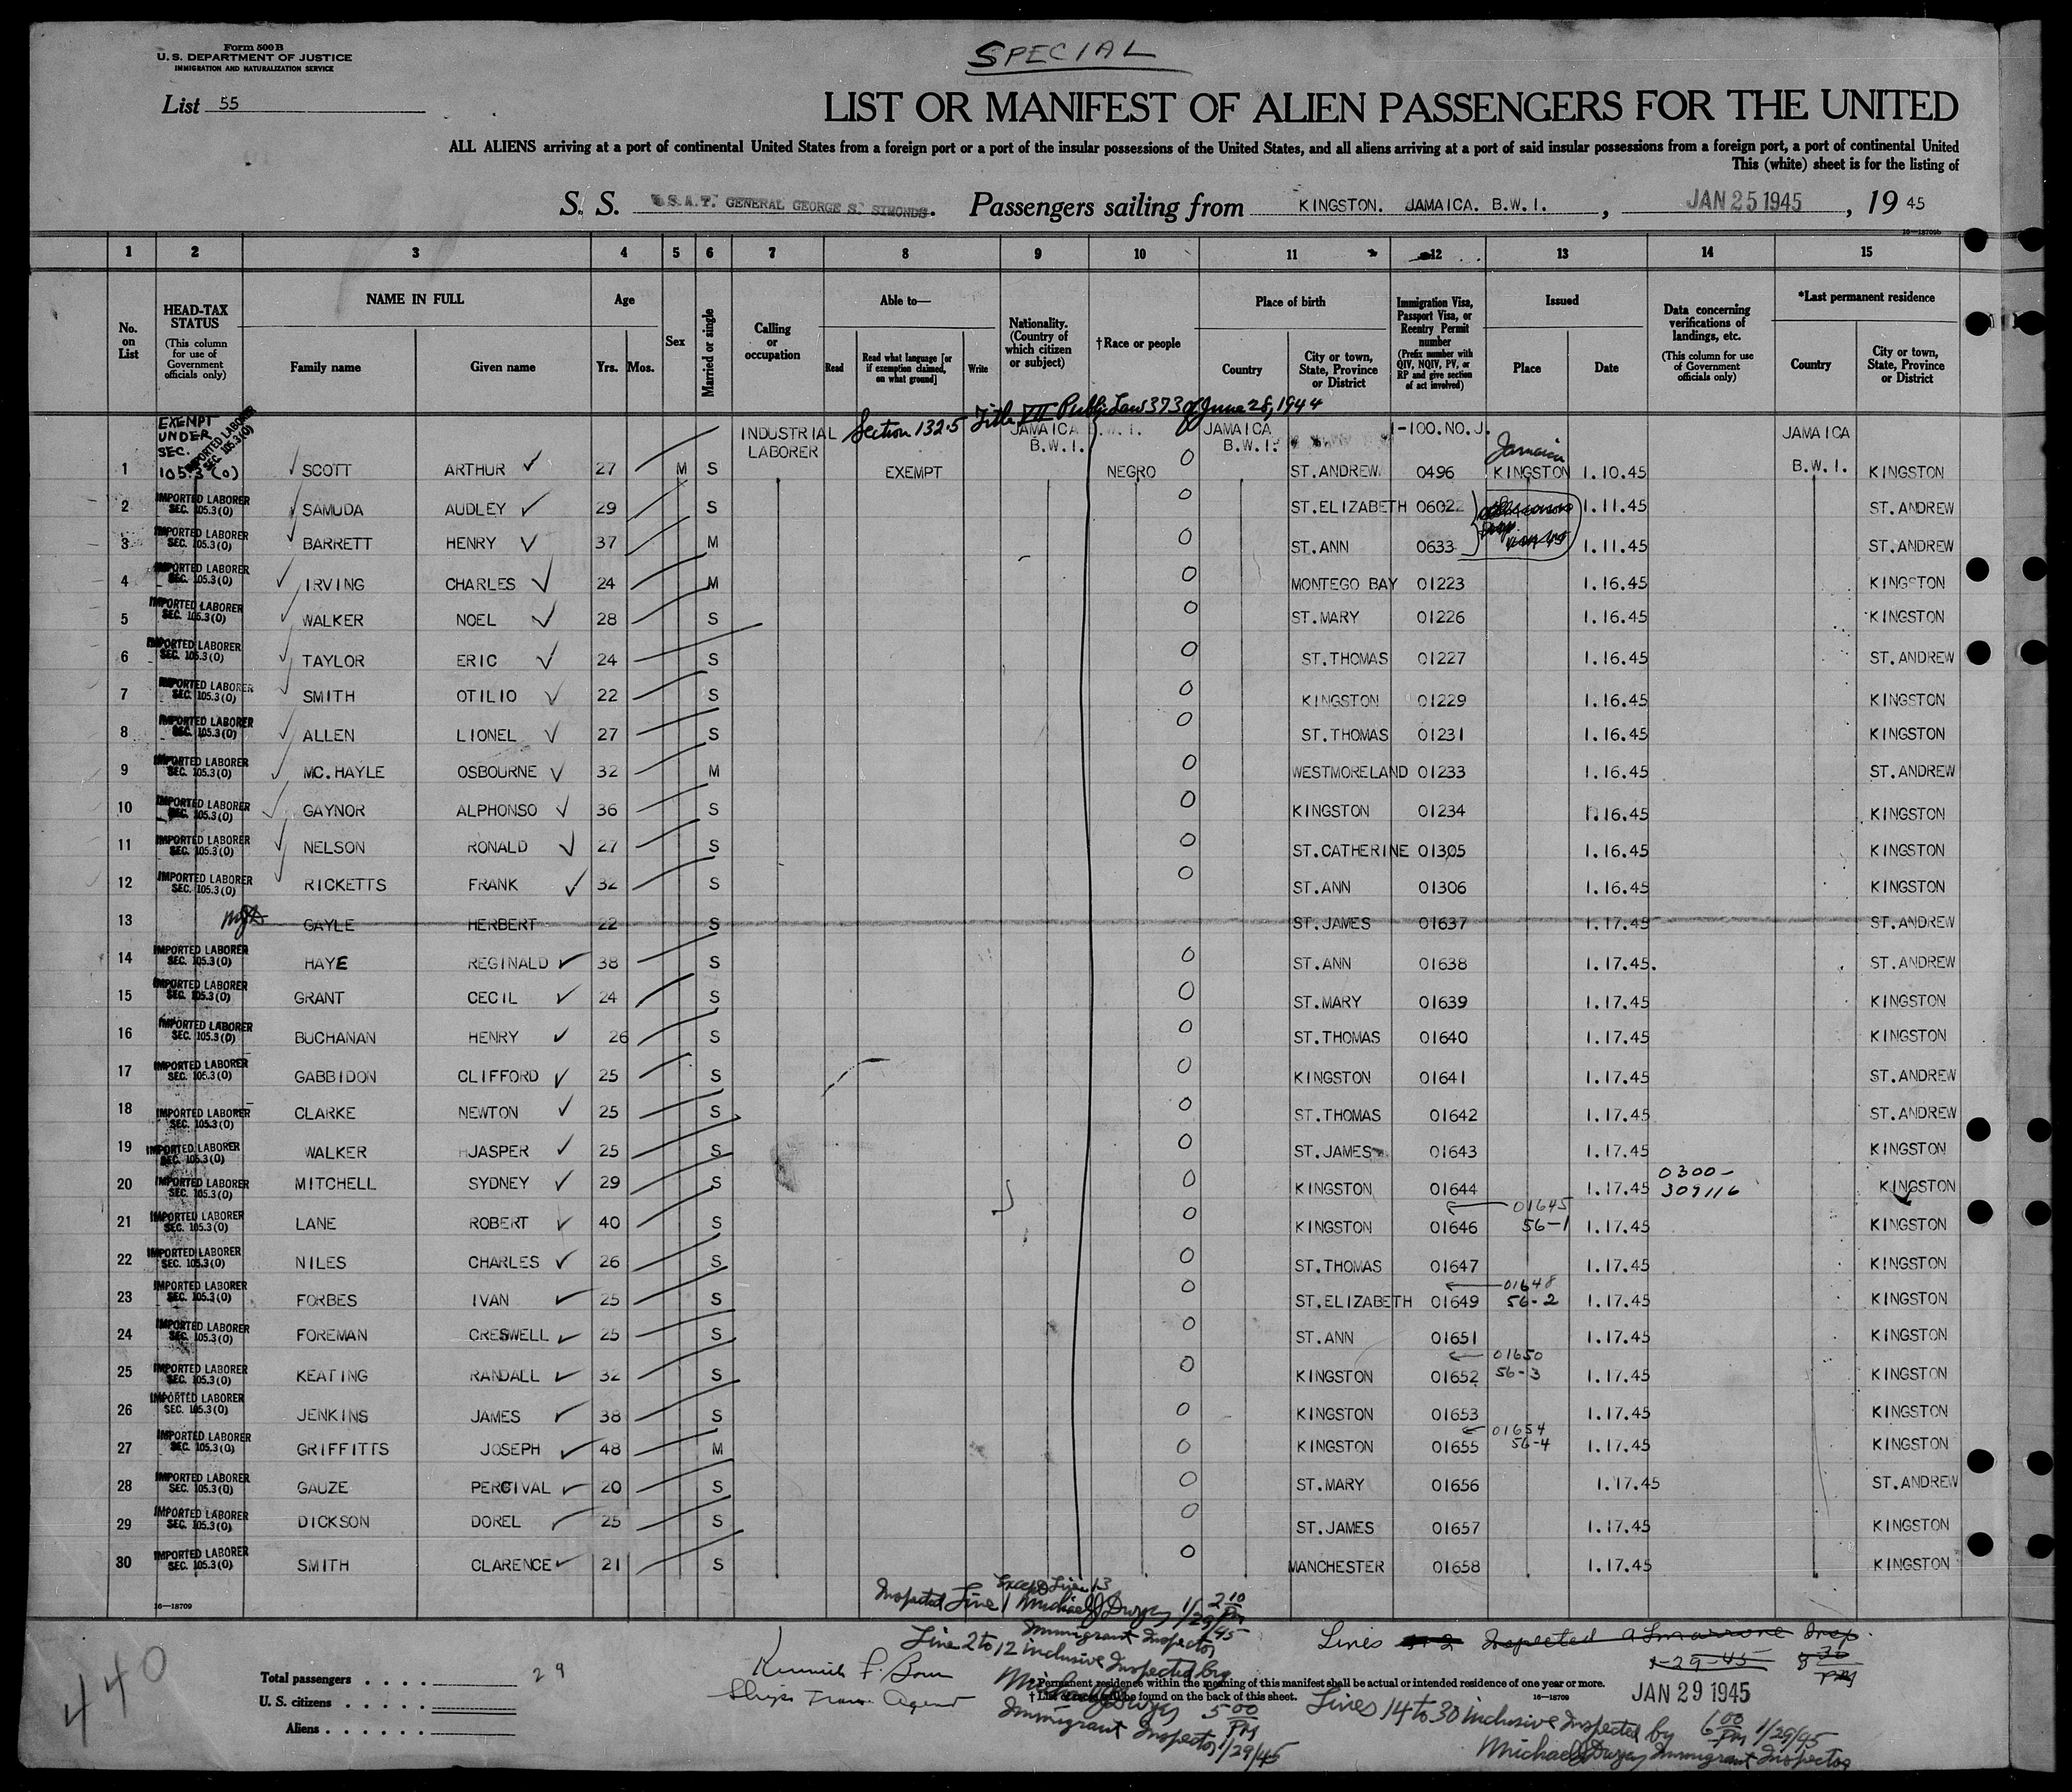 Form 500 B
U. S. DEPARTMENT OF JUSTICE
IMMIGRATION AND NATURALIZATION SERVICE
SPECIAL
List 55
LIST OR MANIFEST OF ALIEN PASSENGERS FOR THE UNITED
ALL ALIENS arriving at a port of continental United States from a foreign port or a port of the insular possessions of the United States, and all aliens arriving at a port of said insular possessions from a foreign port, a port of continental United
This (white) sheet is for the listing of
S. S. U.S.A.T. GENERAL GEORGE S. SIMONDS. Passengers sailing from KINGSTON. JAMAICA. B.W.I., JAN 25 1945, 19 45
16—18709b
1 2 3 4 5 6 7 8 9 10 11 12 13 14 15
No. on List
HEAD-TAX STATUS (This column for use of Government officials only)
NAME IN FULL
Family name Given name
Age
Yrs. Mos.
Sex
Married or single
Calling or occupation
Able to—
Read
Read what language [or if exemption claimed, on what ground]
Write
Nationality. (Country of which citizen or subject)
†Race or people
Place of birth
Country
City or town, State, Province or District
Immigration Visa, Passport Visa, or Reentry Permit number (Prefix number with QIV, NQIV, PV, or RP and give section of act involved)
Issued
Place Date
Data concerning verifications of landings, etc. (This column for use of Government officials only)
*Last permanent residence
Country
City or town, State, Province or District
Section 132.5 Title VII Public Law 373 of June 28, 1944
EXEMPT UNDER SEC. 105.3 (0) IMPORTED LABORER SEC. 105.3(0)
INDUSTRIAL LABORER JAMAICA B.W.I. JAMAICA B.W.I. 1-100.NO.J. Jamaica JAMAICA B.W.I.
1 SCOTT ARTHUR 27 M S EXEMPT NEGRO ST.ANDREW 0496 KINGSTON 1.10.45 KINGSTON
2 IMPORTED LABORER SEC. 105.3(0) SAMUDA AUDLEY 29 S ST.ELIZABETH 06022 1.11.45 ST.ANDREW
3 IMPORTED LABORER SEC. 105.3(0) BARRETT HENRY 37 M ST.ANN 0633 1.11.45 ST.ANDREW
4 IMPORTED LABORER SEC. 105.3(0) IRVING CHARLES 24 M MONTEGO BAY 01223 1.16.45 KINGSTON
5 IMPORTED LABORER SEC. 105.3(0) WALKER NOEL 28 S ST.MARY 01226 1.16.45 KINGSTON
6 IMPORTED LABORER SEC. 105.3(0) TAYLOR ERIC 24 S ST.THOMAS 01227 1.16.45 ST.ANDREW
7 IMPORTED LABORER SEC. 105.3(0) SMITH OTILIO 22 S KINGSTON 01229 1.16.45 KINGSTON
8 IMPORTED LABORER SEC. 105.3(0) ALLEN LIONEL 27 S ST.THOMAS 01231 1.16.45 KINGSTON
9 IMPORTED LABORER SEC. 105.3(0) MC.HAYLE OSBOURNE 32 M WESTMORELAND 01233 1.16.45 ST.ANDREW
10 IMPORTED LABORER SEC. 105.3(0) GAYNOR ALPHONSO 36 S KINGSTON 01234 1.16.45 KINGSTON
11 IMPORTED LABORER SEC. 105.3(0) NELSON RONALD 27 S ST.CATHERINE 01305 1.16.45 KINGSTON
12 IMPORTED LABORER SEC. 105.3(0) RICKETTS FRANK 32 S ST.ANN 01306 1.16.45 KINGSTON
13 GAYLE HERBERT 22 S ST.JAMES 01637 1.17.45 ST.ANDREW
14 IMPORTED LABORER SEC. 105.3(0) HAYE REGINALD 38 S ST.ANN 01638 1.17.45. ST.ANDREW
15 IMPORTED LABORER SEC. 105.3(0) GRANT CECIL 24 S ST.MARY 01639 1.17.45 KINGSTON
16 IMPORTED LABORER SEC. 105.3(0) BUCHANAN HENRY 26 S ST.THOMAS 01640 1.17.45 KINGSTON
17 IMPORTED LABORER SEC. 105.3(0) GABBIDON CLIFFORD 25 S KINGSTON 01641 1.17.45 ST.ANDREW
18 IMPORTED LABORER SEC. 105.3(0) CLARKE NEWTON 25 S ST.THOMAS 01642 1.17.45 ST.ANDREW
19 IMPORTED LABORER SEC. 105.3(0) WALKER JASPER 25 S ST.JAMES 01643 1.17.45 KINGSTON
20 IMPORTED LABORER SEC. 105.3(0) MITCHELL SYDNEY 29 S KINGSTON 01644 1.17.45 0300-309116 KINGSTON
01645
21 IMPORTED LABORER SEC. 105.3(0) LANE ROBERT 40 S KINGSTON 01646 56-1 1.17.45 KINGSTON
22 IMPORTED LABORER SEC. 105.3(0) NILES CHARLES 26 S ST.THOMAS 01647 1.17.45 KINGSTON
01648
23 IMPORTED LABORER SEC. 105.3(0) FORBES IVAN 25 S ST.ELIZABETH 01649 56-2 1.17.45 KINGSTON
24 IMPORTED LABORER SEC. 105.3(0) FOREMAN CRESWELL 25 S ST.ANN 01651 1.17.45 KINGSTON
01650
25 IMPORTED LABORER SEC. 105.3(0) KEATING RANDALL 32 S KINGSTON 01652 56-3 1.17.45 KINGSTON
26 IMPORTED LABORER SEC. 105.3(0) JENKINS JAMES 38 S KINGSTON 01653 1.17.45 KINGSTON
01654
27 IMPORTED LABORER SEC. 105.3(0) GRIFFITTS JOSEPH 48 M KINGSTON 01655 56-4 1.17.45 KINGSTON
28 IMPORTED LABORER SEC. 105.3(0) GAUZE PERCIVAL 20 S ST.MARY 01656 1.17.45 ST.ANDREW
29 IMPORTED LABORER SEC. 105.3(0) DICKSON DOREL 25 S ST.JAMES 01657 1.17.45 KINGSTON
30 IMPORTED LABORER SEC. 105.3(0) SMITH CLARENCE 21 S MANCHESTER 01658 1.17.45 KINGSTON
16—18709
Except Line 13
Inspected Line 1 Michael J Dwyer 1/29/45 2 10 PM
Immigrant Inspector
Line 2 to 12 inclusive Inspected by
Michael J Dwyer 5 00 PM
Immigrant Inspector 1/29/45
Lines 1-2 Inspected Insp.
1-29-45 8 30 PM
440
Total passengers . . . . 29
U. S. citizens . . . . .
Aliens . . . . . .
Kenneth P.
Ships Trans. Agent
*Permanent residence within the meaning of this manifest shall be actual or intended residence of one year or more.
† List of races will be found on the back of this sheet.
16—18709
JAN 29 1945
Lines 14 to 30 inclusive Inspected by 6 00 PM 1/29/45
Michael J Dwyer Immigrant Inspector